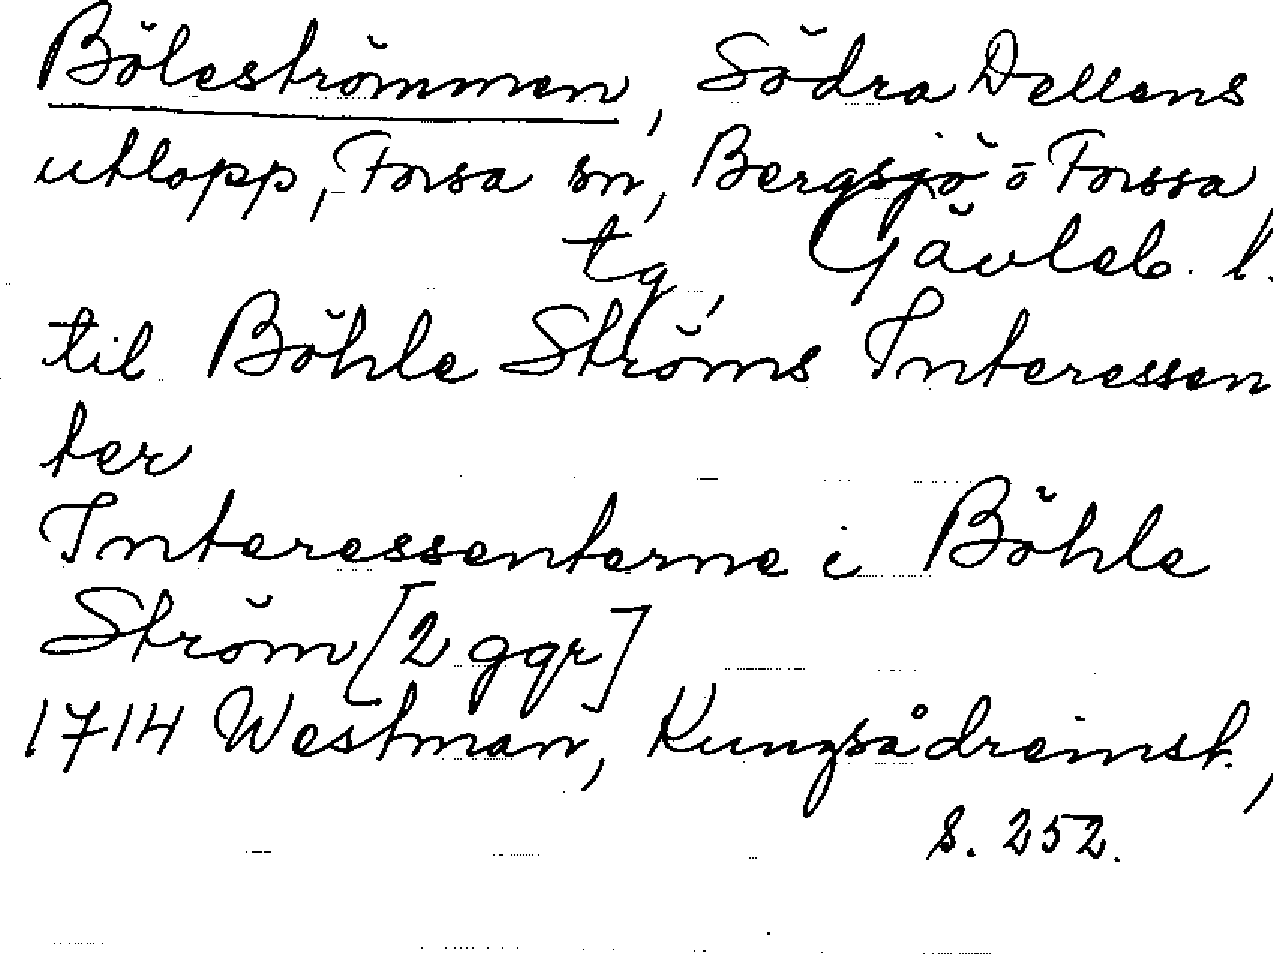 Böleströmmen, Södra Dellens
utlopp, Forsa sn, Bergsjö o Forssa,
tg, Gävleb. l.
til Böhle Ströms Interessen
ter
Interessenterne i Böhle
Ström [2 ggr]
1714 Westman, Kungsådreinst.,
s. 252.